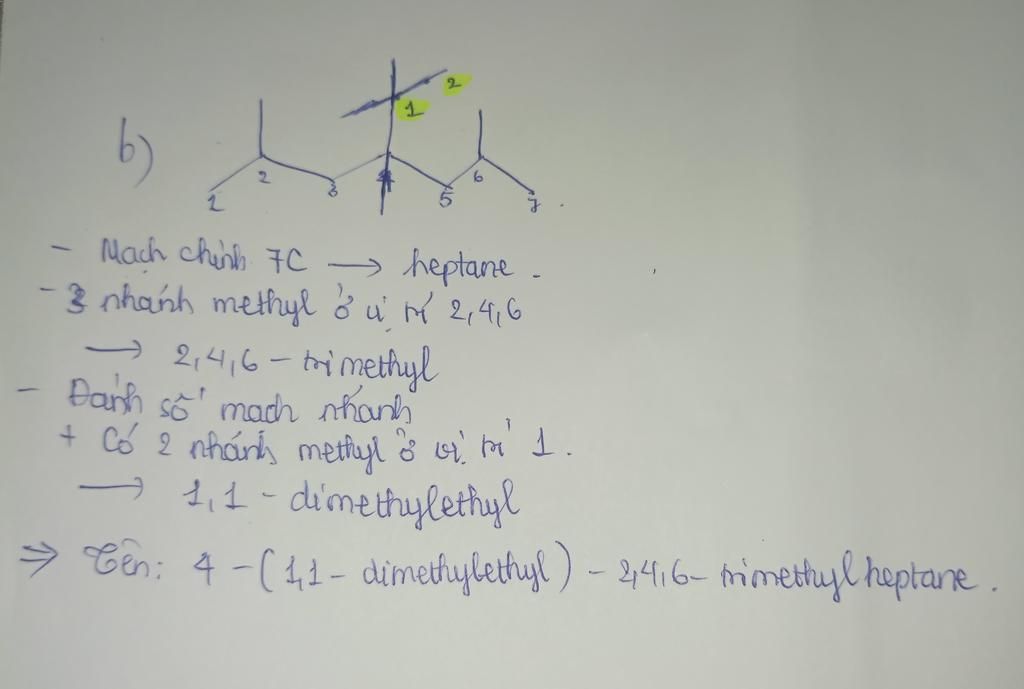 b)
2
1
1
2
3
4
5
6
7
- Mạch chính 7C → heptane.
- 3 nhánh methyl ở vị trí 2,4,6
→ 2,4,6 - trimethyl
- Đánh số mạch nhánh
+ Có 2 nhánh methyl ở vị trí 1.
→ 1,1 - dimethylethyl
⇒ Tên: 4 - (1,1 - dimethylethyl) - 2,4,6 - trimethylheptane.